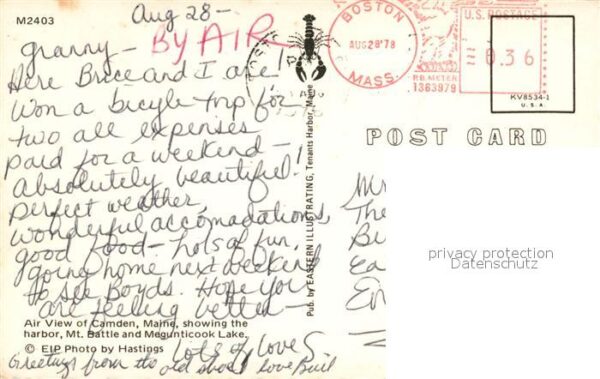 M2403
Aug 28-
BY AIR
Granny-
Here Brice and I are!
Won a bicycle trip for
two all expenses
paid for a weekend-
Absolutely beautiful!
perfect weather,
wonderful accomodations,
good food - lots of fun.
going home next weekend
to see Boyds. Hope you
are feeling better-
Lots of love
Greetings from the old shoe! Love
Air View of Camden, Maine, showing the
harbor, Mt. Battie and Megunticook Lake.
© EIP Photo by Hastings
Pub. by EASTERN ILLUSTRATING, Tenants Harbor, Maine
BOSTON
AUG 28 '78
MASS.
U.S. POSTAGE
0.36
P.B. METER
1363979
KV8534-1
U S A
POST CARD
privacy protection
Datenschutz